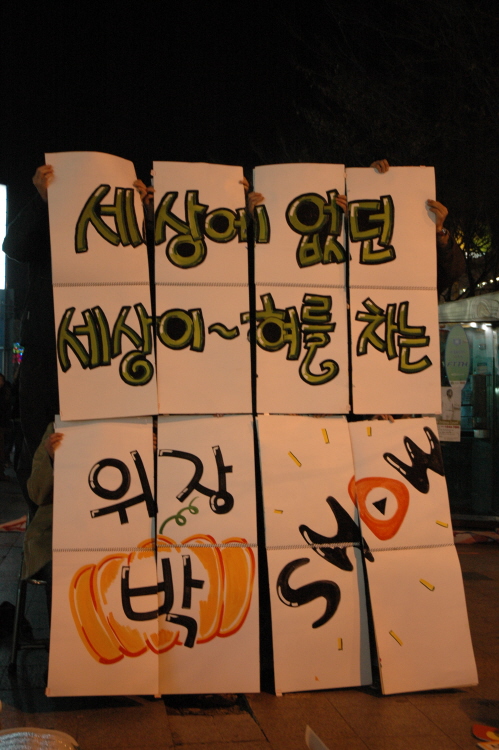 세상에 없던
세상이~ 혀를 차는
위장
박
SHOW